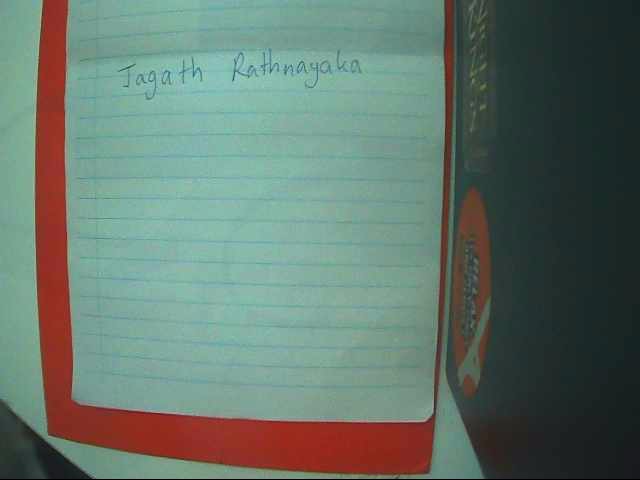 Jagath Rathnayaka